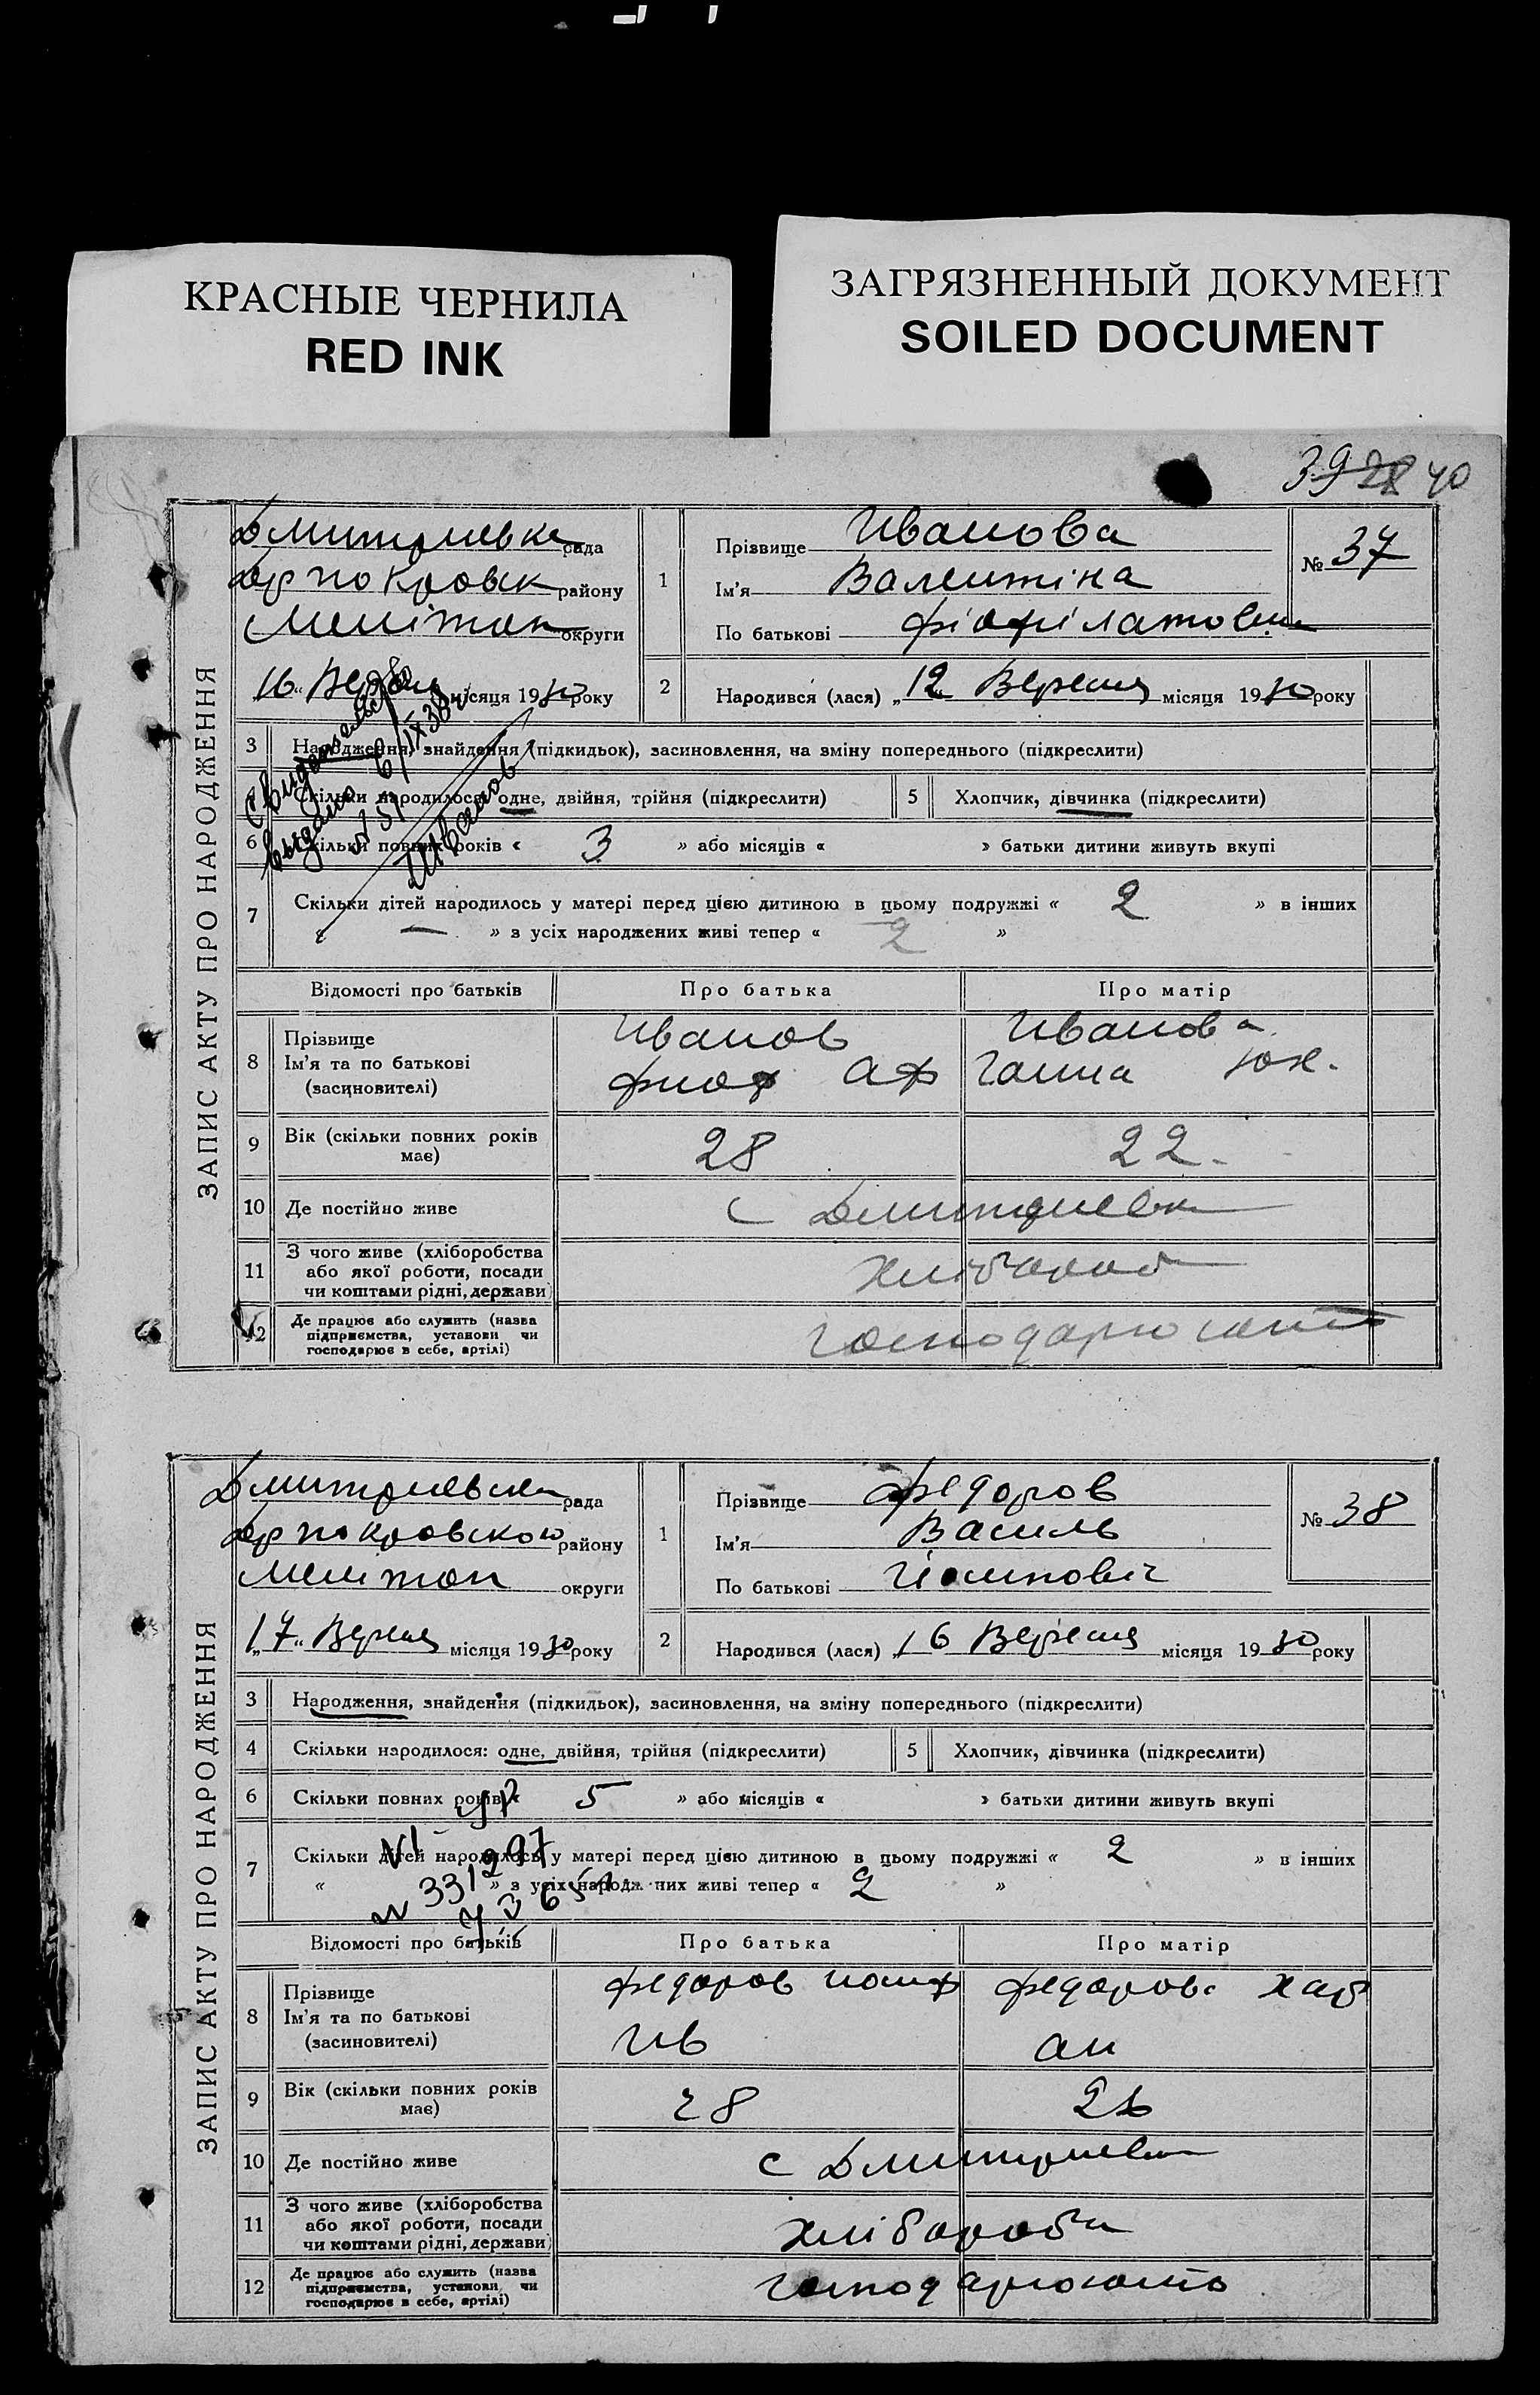 КРАСНЫЕ ЧЕРНИЛА
RED INK
ЗАГРЯЗНЕННЫЙ ДОКУМЕНТ
SOILED DOCUMENT
39 28 40
ЗАПИС АКТУ ПРО НАРОДЖЕННЯ
Дмитриевка рада
району
Мелітоп округи
„16“ Вересня місяця 1930 року
1
Прізвище Иванова
Ім'я Валентіна
По батькові
№ 37
2
Народився (лася) „12 Вересня місяця 1930 року
3 Народження, знайдення (підкидьок), засиновлення, на зміну попереднього (підкреслити)
Скільки народилося: одне, двійня, трійня (підкреслити)
5 Хлопчик, дівчинка (підкреслити)
6 Скільки повних років « 3 » або місяців « » батьки дитини живуть вкупі
Свидетельство
выдано 6/IX 38
Иванов
7 Скільки дітей народилось у матері перед цією дитиною в цьому подружжі « 2 » в інших
« — » з усіх народжених живі тепер « 2 »
Відомості про батьків Про батька Про матір
8 Прізвище
Ім'я та по батькові
(засиновителі)
Иванов
Фиоф Аф
Иванова
Ганна
9 Вік (скільки повних років має) 28 22
10 Де постійно живе с Дмитриевка
11 З чого живе (хліборобства
або якої роботи, посади
чи коштами рідні, держави) хлібороб
12 Де працює або служить (назва
підприємства, установи чи
господарює в себе, артілі) господарюють
ЗАПИС АКТУ ПРО НАРОДЖЕННЯ
Дмитриевська рада
району
Мелітоп округи
„17“ Вересня місяця 1930 року
1
Прізвище Федоров
Ім'я Василь
По батькові Йосипович
№ 38
2
Народився (лася) „16 Вересня місяця 1930 року
3 Народження, знайдення (підкидьок), засиновлення, на зміну попереднього (підкреслити)
4 Скільки народилося: одне, двійня, трійня (підкреслити)
5 Хлопчик, дівчинка (підкреслити)
6 Скільки повних років « 5 » або місяців « » батьки дитини живуть вкупі
7 Скільки дітей народилось у матері перед цією дитиною в цьому подружжі « 2 » в інших
« » з усіх народжених живі тепер « 2 »
Відомості про батьків Про батька Про матір
8 Прізвище
Ім'я та по батькові
(засиновителі)
Федоров Иосиф
Ив
Федорова Хар
Ан
9 Вік (скільки повних років має) 28
10 Де постійно живе с Дмитриевка
11 З чого живе (хліборобства
або якої роботи, посади
чи коштами рідні, держави) хлібороби
12 Де працює або служить (назва
підприємства, установи чи
господарює в себе, артілі) господарюють